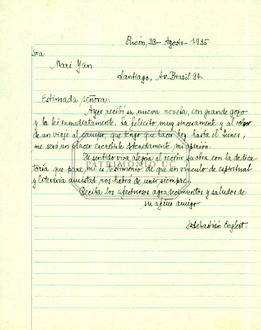 Pucón, 23- Agosto - 1935
Sra
Mari Yan
Santiago, Av. Brasil 94.
Estimada señora:
Ayer recibí su nueva novela, con grande gozo
y la leí inmediatamente. La felicito muy sinceramente y al volver
de un viaje al campo, que tengo que hacer hoy hasta el lunes,
me será un placer escribirle detenidamente mi opinión.
He sentido viva alegría al recibir su obra con la dedica
toria que para mí es testimonio de que un vínculo de espiritual
y literaria amistad nos habrá de unir siempre.
Reciba los afectuosos agradecimientos y saludos de
su afmo amigo
Sebastián Englert.
PATRIMONIO UC